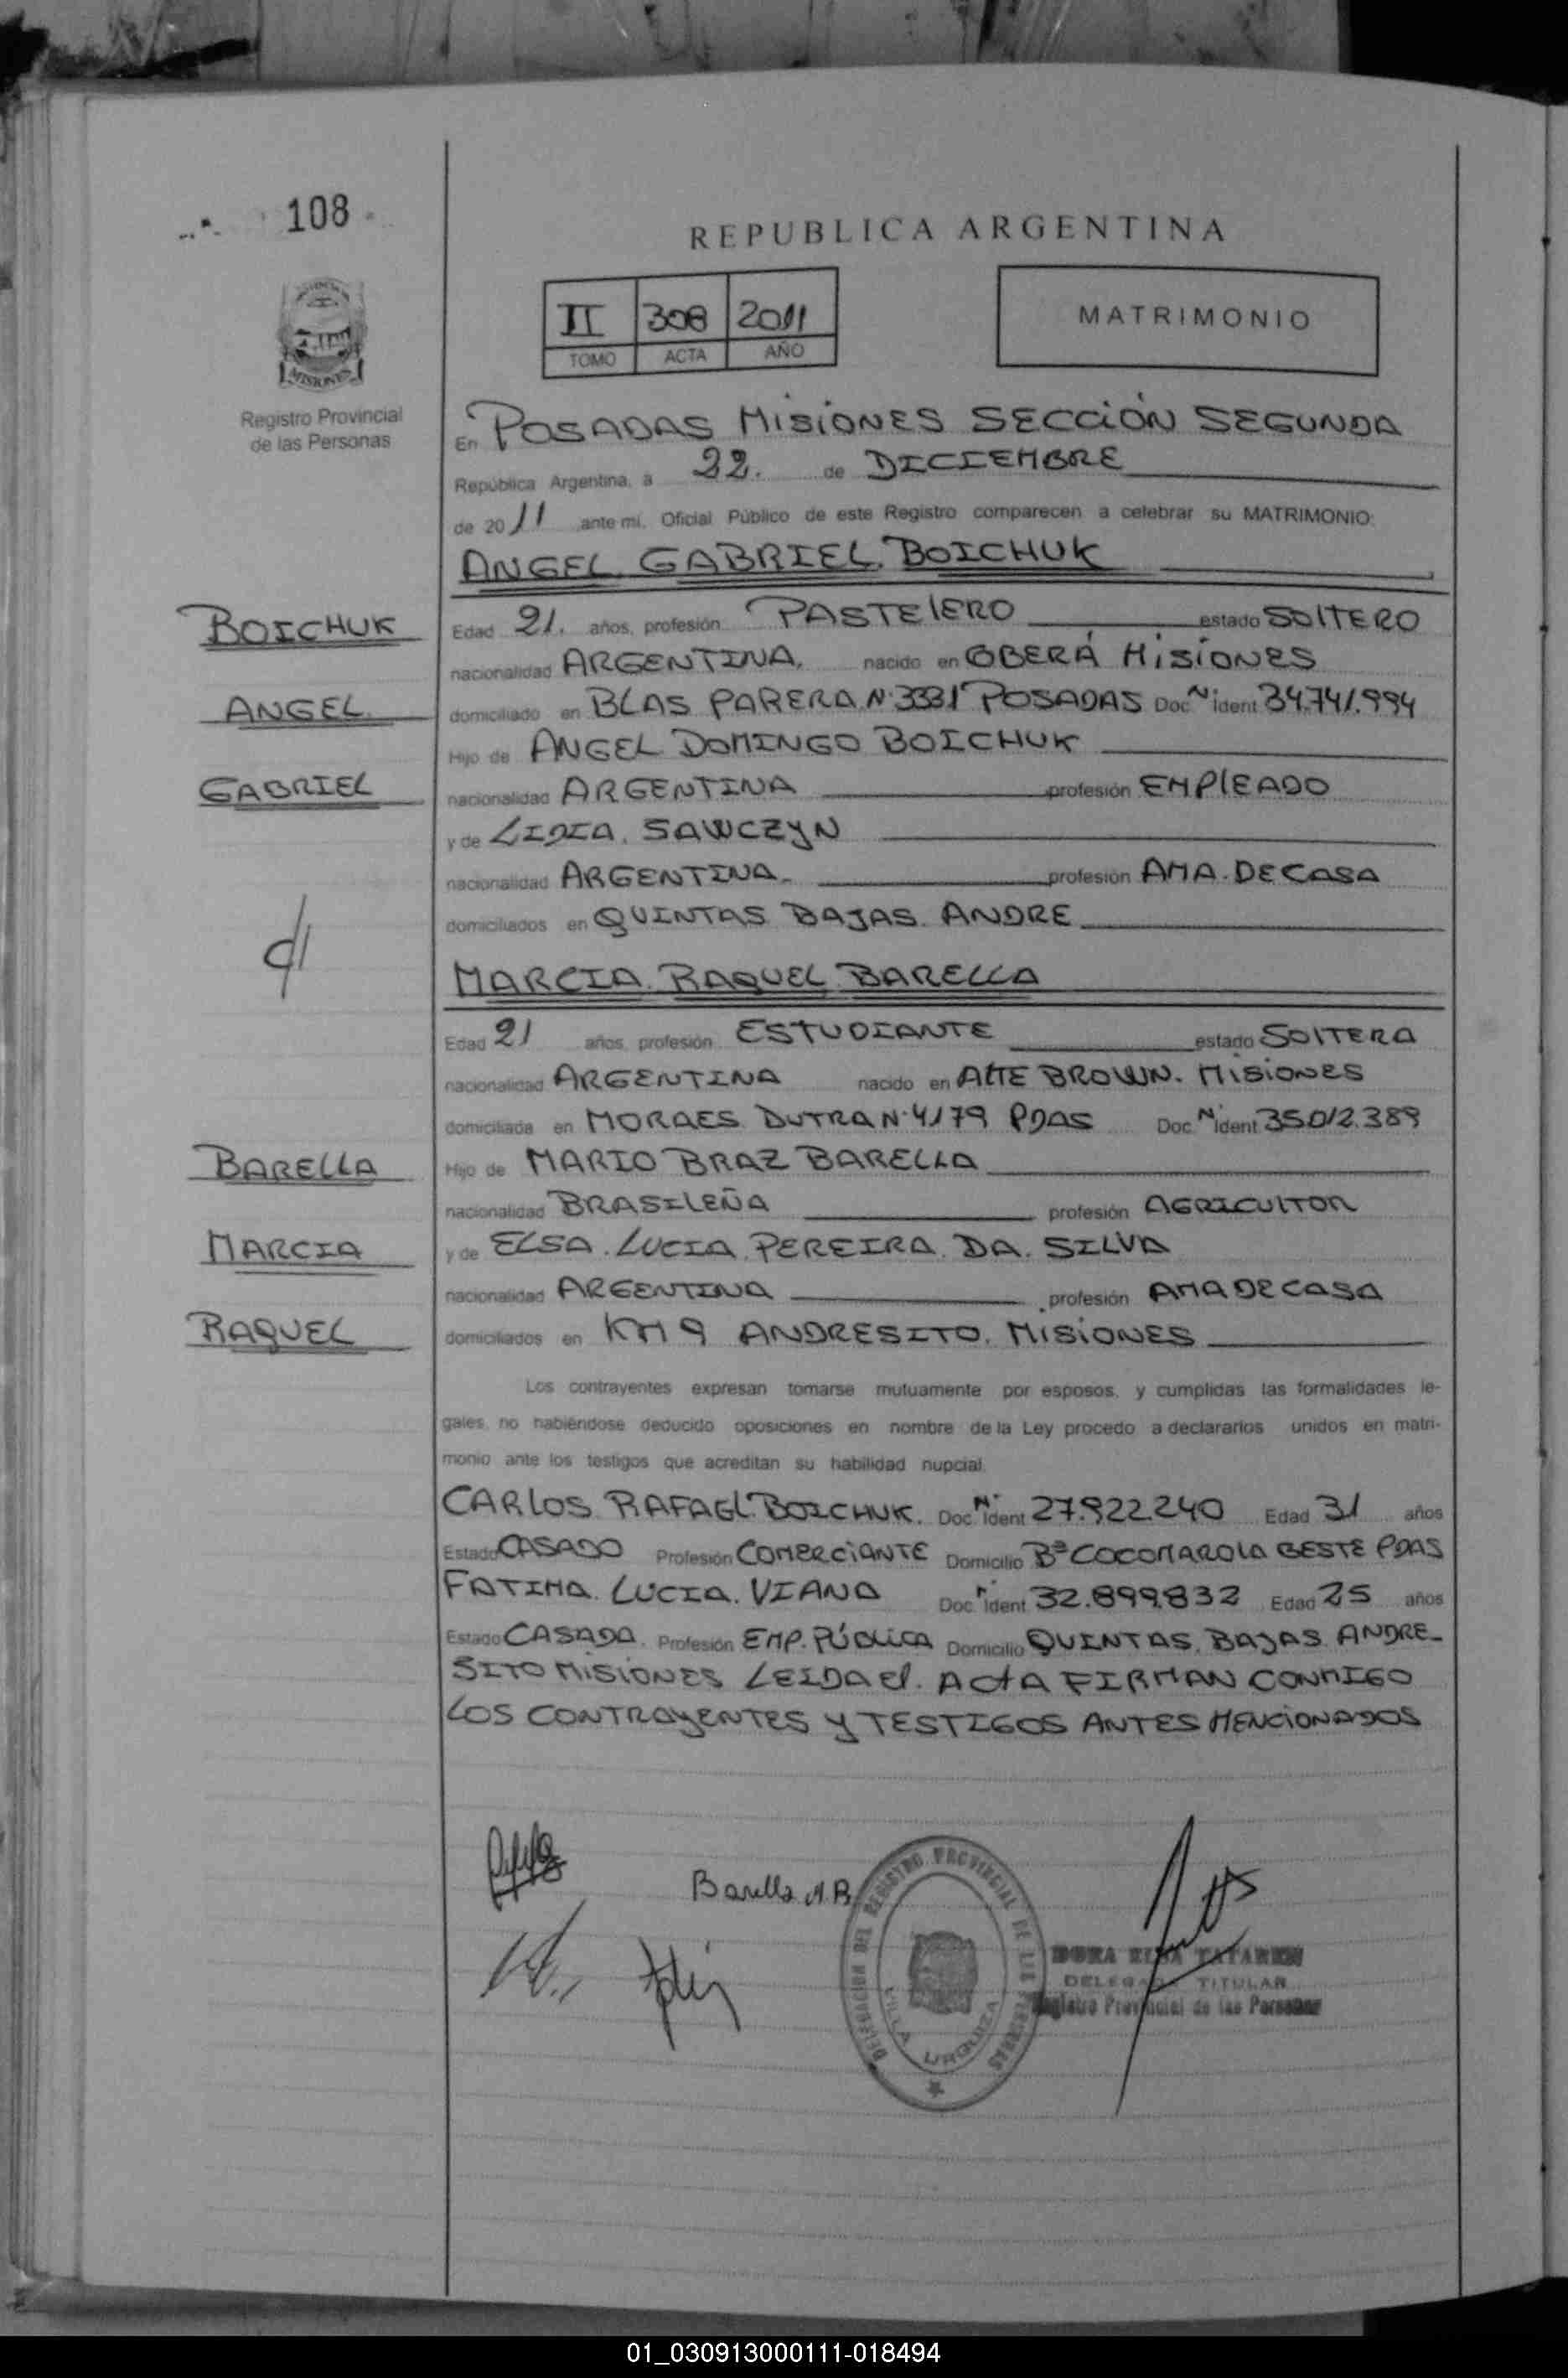 108
REPUBLICA ARGENTINA
II 308 2011
TOMO ACTA AÑO
MATRIMONIO
MISIONES
Registro Provincial
de las Personas
En POSADAS MISIONES SECCIÓN SEGUNDA
República Argentina, a 22. de DICIEMBRE
de 2011 ante mí, Oficial Público de este Registro comparecen a celebrar su MATRIMONIO:
ANGEL GABRIEL BOICHUK
BOICHUK
ANGEL
GABRIEL
Edad 21. años, profesión PASTElERO estado SOlTERO
nacionalidad ARGENTINA, nacido en OBERÁ MISIONES
domiciliado en BLAS PARERA Nº 3331 POSADAS Doc. Nº Ident 34.741.994
Hijo de ANGEL DOMINGO BOICHUK
nacionalidad ARGENTINA profesión EMPlEADO
y de LIDIA SAWCZYN
nacionalidad ARGENTINA profesión AMA DE CASA
domiciliados en QUINTAS BAJAS ANDRE
MARCIA RAQUEL BARELLA
Edad 21 años, profesión ESTUDIANTE estado SOlTERA
nacionalidad ARGENTINA nacido en AlTE BROWN. MISIONES
domiciliada en MORAES DUTRA Nº 4179 PDAS Doc. Nº Ident 35.012.389
BARELLA
MARCIA
RAQUEL
Hijo de MARIO BRAZ BARELLA
nacionalidad BRASILEÑA profesión AGRICUlTOR
y de ELSA LUCIA PEREIRA DA SILVA
nacionalidad ARGENTINA profesión AMA DE CASA
domiciliados en KM 9 ANDRESITO. MISIONES
Los contrayentes expresan tomarse mutuamente por esposos, y cumplidas las formalidades le-
gales, no habiéndose deducido oposiciones en nombre de la Ley procedo a declararlos unidos en matri-
monio ante los testigos que acreditan su habilidad nupcial.
CARLOS RAFAEL BOICHUK. Doc. Nº Ident 27.922.240 Edad 31 años
Estado CASADO Profesión COMERCIANTE Domicilio Bº COCOMAROLA OESTE PDAS
FATIMA LUCIA VIANA Doc. Nº Ident 32.899.832 Edad 25 años
Estado CASADA. Profesión EMP. PÚBLICA Domicilio QUINTAS BAJAS ANDRE-
SITO MISIONES LEIDA el ACTA FIRMAN CONMIGO
LOS CONTRAYENTES Y TESTIGOS ANTES MENCIONADOS
Barella M.R
DELEGACION DEL REGISTRO PROVINCIAL DE LAS PERSONAS
VILLA URQUIZA
DORA ELSA
DELEGADA TITULAR
Registro Provincial de las Personas
01_030913000111-018494